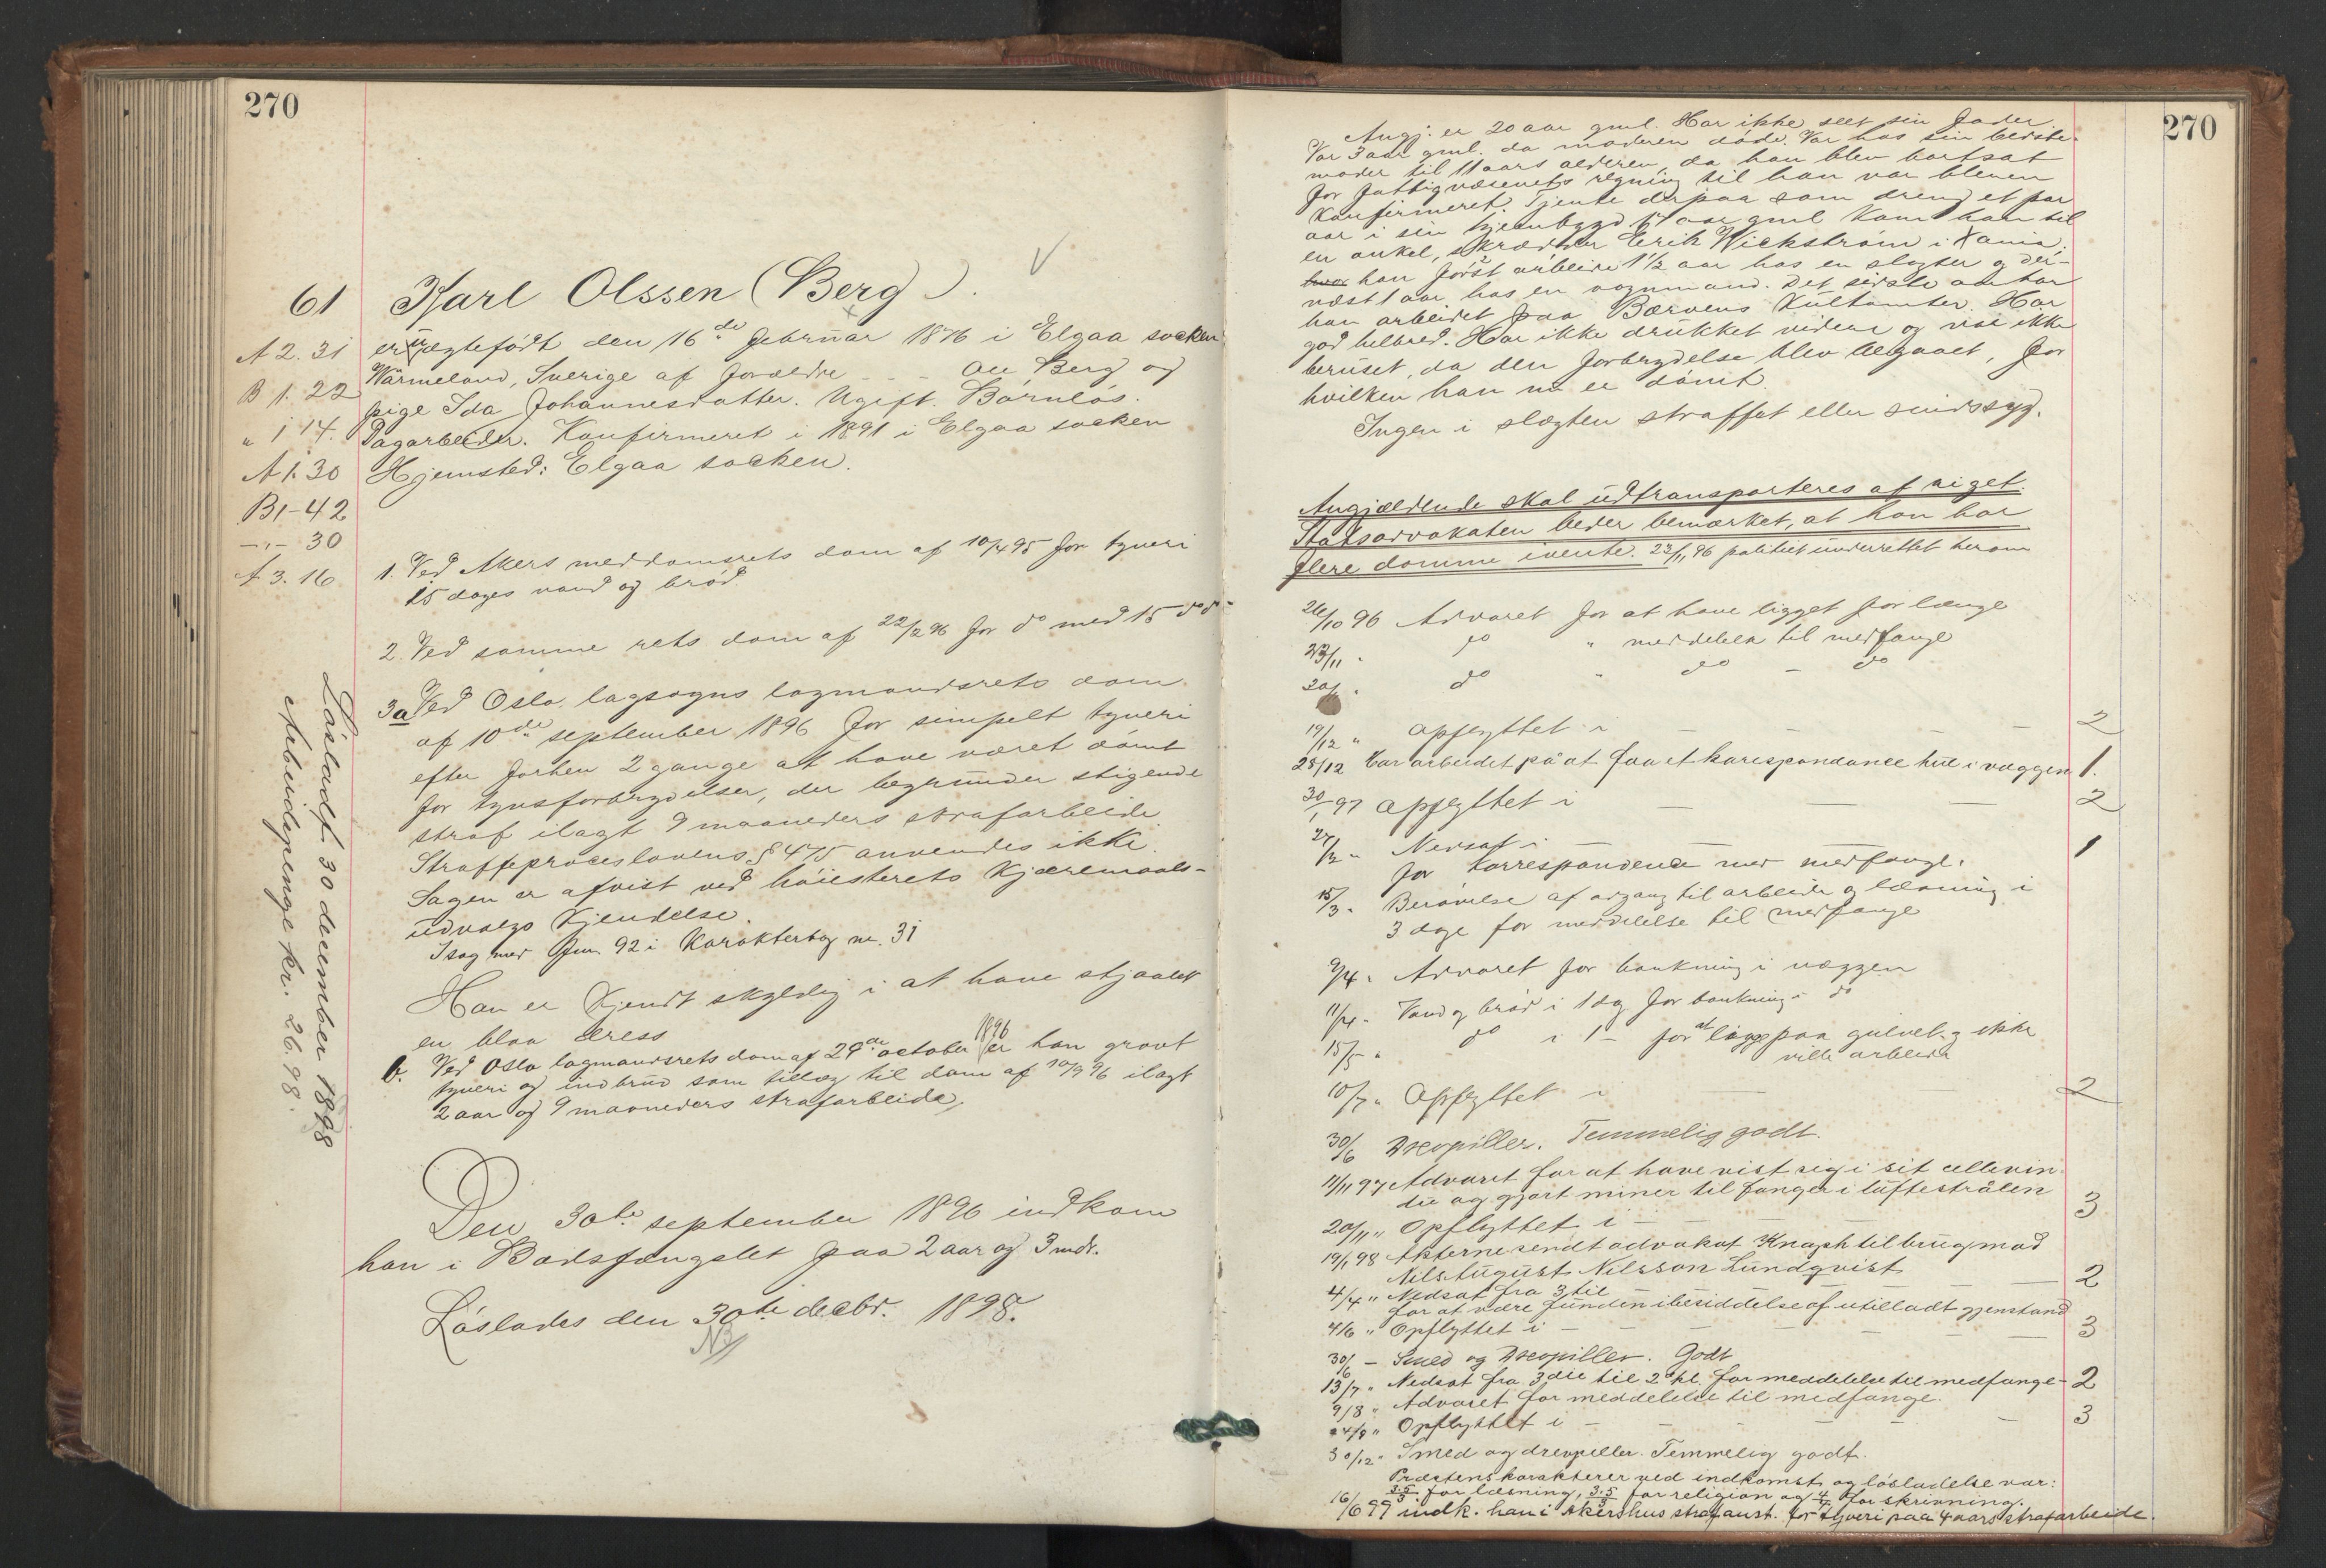 270
61 Karl Olssen (Berg).
A 2. 31 er uægtefødt den 16de februar 1876 i Elgaa socken
B 1. 22 Wärmeland, Sverige af forældre - - - Ole Berg og
" 1 14. pige Ida Johannesdatter. Ugift. Børnløs.
Dagarbeider. Konfirmeret i 1891 i Elgaa socken
A 1. 30 Hjemsted: Elgaa socken.
B 1 - 42
-"- 30
A 3. 16
1. Ved Akers meddomsrets dom af 10/4 95 for tyveri
15 dages vand og brød.
2. Ved samme rets dom af 22/2 96 for do med 15 do do
3a Ved Oslo lagsogns lagmandsrets dom
af 10de september 1896 for simpelt tyveri
efter forhen 2 gange at have været dømt
for tyvsforbrydelser, der begrunder stigende
straf ilagt 9 maaneders strafarbeide.
Straffeproceslovens § 475 anvendes ikke.
Sagen er afvist ved høiesterets Kjæremaals-
udvalgs Kjendelse.
I sag med Gjen. 92 i Karakterbog nr. 31
Han er Kjendt skyldig i at have stjaalet
en blaa dress
b. Ved Oslo lagmandsrets dom af 29de october 1896 er han grovt
tyveri og indbrud som tillæg til dom af 10/9 96 ilagt
2 aar og 9 maaneders strafarbeide.
Den 30te september 1896 indkom
han i Bodsfængslet paa 2 aar og 3 mdr.
Løslades den 30te decbr. 1898.
Løsladt 30 december 1898
Arbeidspenge kr. 26.98.
270
Angj. er 20 aar gml. Har ikke seet sin fader.
Var 3 aar gml. da moderen døde. Var hos sin bedste-
moder til 11 aars alderen, da han blev bortsat
for fattigvæsenets regning til han var bleven
konfirmeret. Tjente derpaa som dreng et par
aar i sin hjembygd. 17 aar gml kom han til
en onkel, skrædder Erik Wickstrøm i Xania.
hvor han først arbeide 1 1/2 aar hos en slagter og der-
næst 1 aar hos en vognmand. Det sidste aar har
han arbeidet paa Bærums Kultomter. Har
god helbred. Har ikke drukket videre og var ikke
beruset, da den forbrydelse blev begaaet, for
hvilken han nu er dømt.
Ingen i slægten straffet eller sindssyg.
Angjældende skal udtransporteres af riget.
Statsadvokaten beder bemærket, at han har
flere domme ivente. 23/11 96 politiet underrettet herom
26/10 96 Advaret for at have ligget for længe
23/11 " do " meddelelse til medfange
20/ " do " do - do
19/12 " opflyttet i - - - 2
28/12 har arbeidet på at faa et korrespondance hul i væggen 1.
30/1 97 opflyttet i - - 2
27/2 " Nedsat i - - 1
for korrespondence med medfange.
15/3 " Berøvelse af adgang til arbeide og læsning i
3 dage for meddelelse til medfange
9/4 " Advaret for bankning i væggen
11/4 " Vand og brød i 1 dag for bankning i do
15/5 " do i 1 - for at ligge paa gulvet og ikke
ville arbeide
10/7 " Opflyttet i - 2
30/6 Drevpiller. Temmelig godt.
11/11 97 Advaret for at have vist sig i sit cellevin-
du og gjort miner til fanger i luftestrålen
20/11 " Opflyttet i - - - 3
19/1 98 Akterne sendt advokat Knaph til brug mod
Nils August Nilsson Lundqvist
4/4 " Nedsat fra 3 til - 2
for at være funden i besiddelse af utilladt gjenstand
4/6 " Opflyttet i - - - 3
30/6 - Smed og Drevpiller. Godt
13/7 " Nedsat fra 3die til 2 kl. for meddelelse til medfange - 2
9/8 " Advaret for meddelelse til medfange.
Opflyttet i - - - 3
30/12 " Smed og drevpiller. Temmelig godt.
Præstens karakterer ved indkomst og løsladelse var:
3.5/3 for læsning, 3.5/3 for religion og 4/4 for skrivning.
16/6 99 indk. han i Akershus strafanst. for tyveri paa 4 aars strafarbeide.